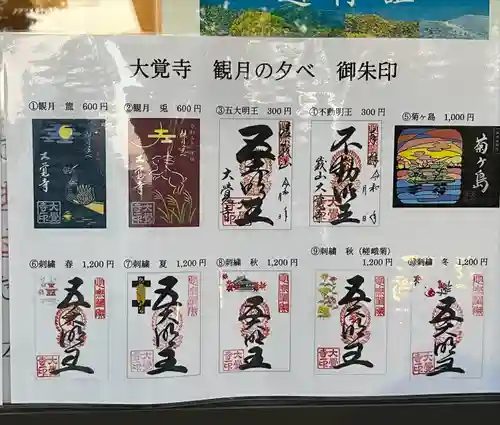 大覚寺 観月の夕べ 御朱印
①観月 龍 600円
②観月 兎 600円
③五大明王 300円
④不動明王 300円
⑤菊ヶ島 1,000円
大覚寺
五大明王
大覚寺
不動明王
嵯峨山 大覚寺
菊ヶ島
⑥刺繍 春 1,200円
⑦刺繍 夏 1,200円
⑧刺繍 秋 1,200円
⑨刺繍 秋(嵯峨菊)
1,200円
⑩刺繍 冬 1,200円
五大明王
五大明王
五大明王
五大明王
五大明王